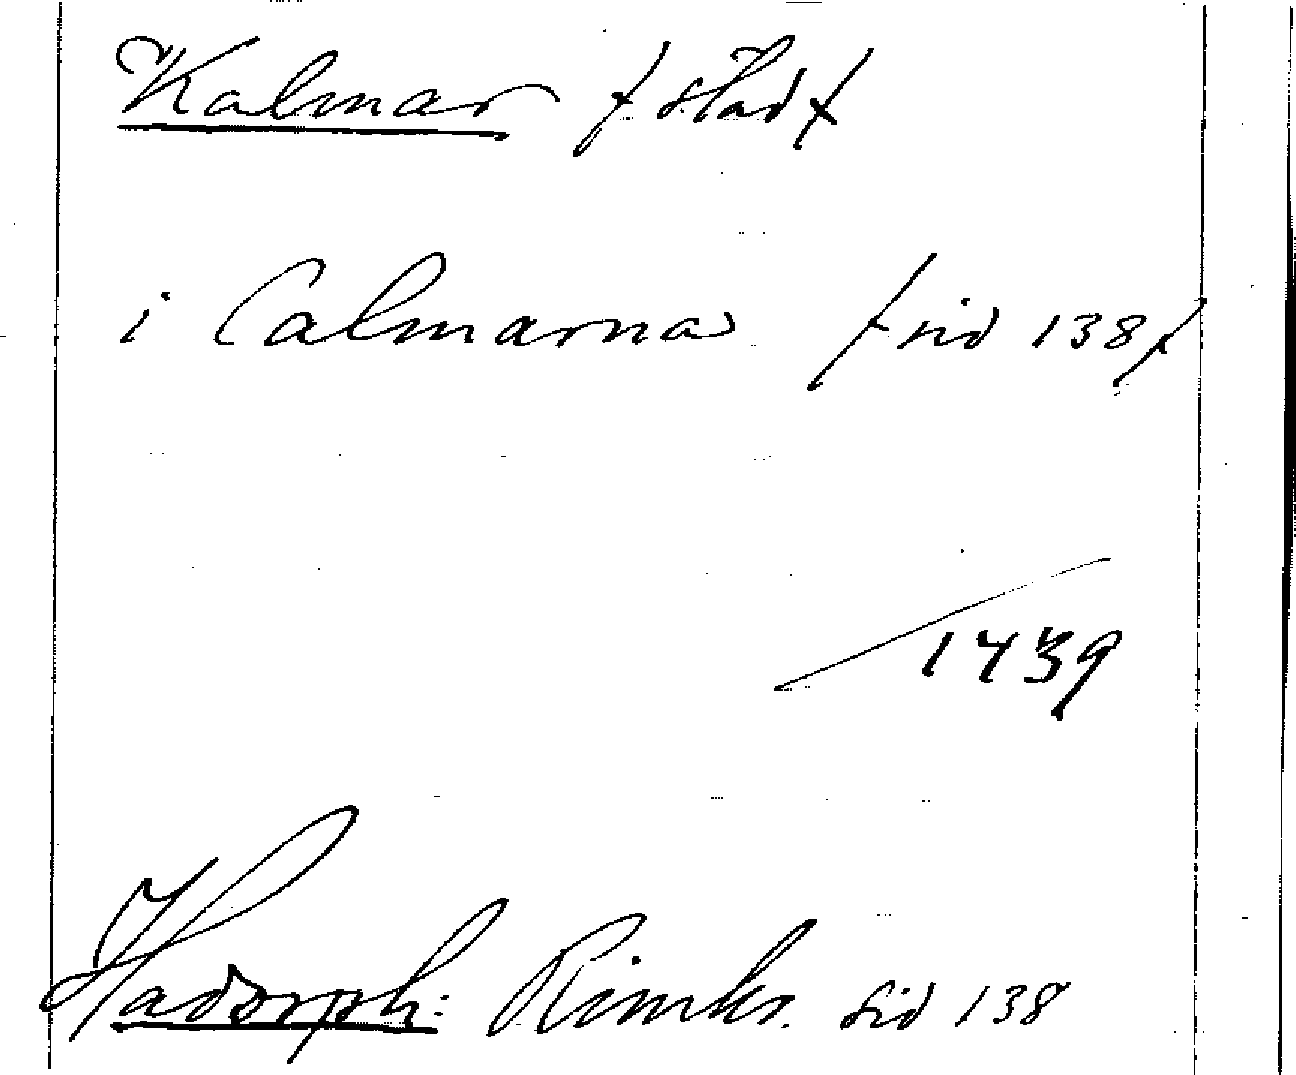 Kalmar /stad/
i Calmarna /sid 138/
1439
Hadorph: Rimkr. sid 138